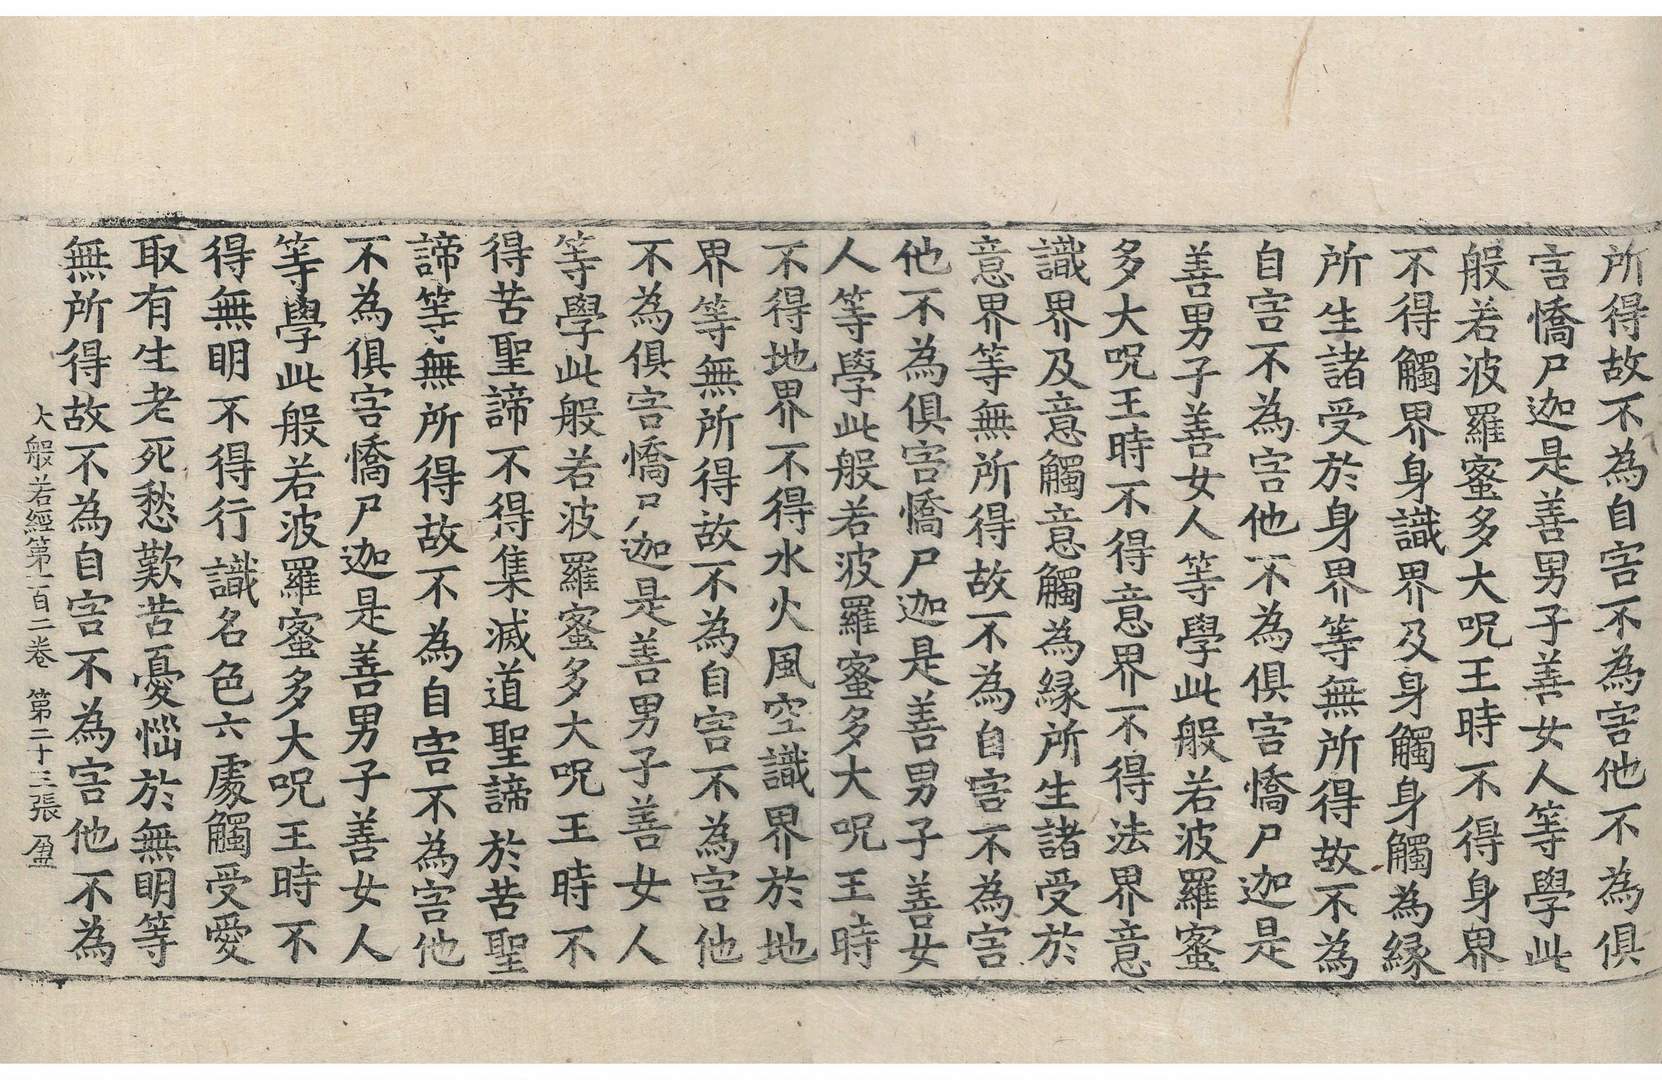 所得故不為自害不為害他不為俱
害憍尸迦是善男子善女人等學此
般若波羅蜜多大呪王時不得身界
不得觸界身識界及身觸身觸為緣
所生諸受於身界等無所得故不為
自害不為害他不為俱害憍尸迦是
善男子善女人等學此般若波羅蜜
多大呪王時不得意界不得法界意
識界及意觸意觸為緣所生諸受於
意界等無所得故不為自害不為害
他不為俱害憍尸迦是善男子善女
人等學此般若波羅蜜多大呪王時
不得地界不得水火風空識界於地
界等無所得故不為自害不為害他
不為俱害憍尸迦是善男子善女人
等學此般若波羅蜜多大呪王時不
得苦聖諦不得集滅道聖諦於苦聖
諦等無所得故不為自害不為害他
不為俱害憍尸迦是善男子善女人
等學此般若波羅蜜多大呪王時不
得無明不得行識名色六處觸受愛
取有生老死愁歎苦憂惱於無明等
無所得故不為自害不為害他不為
大般若經第一百二卷 第二十三張 盈